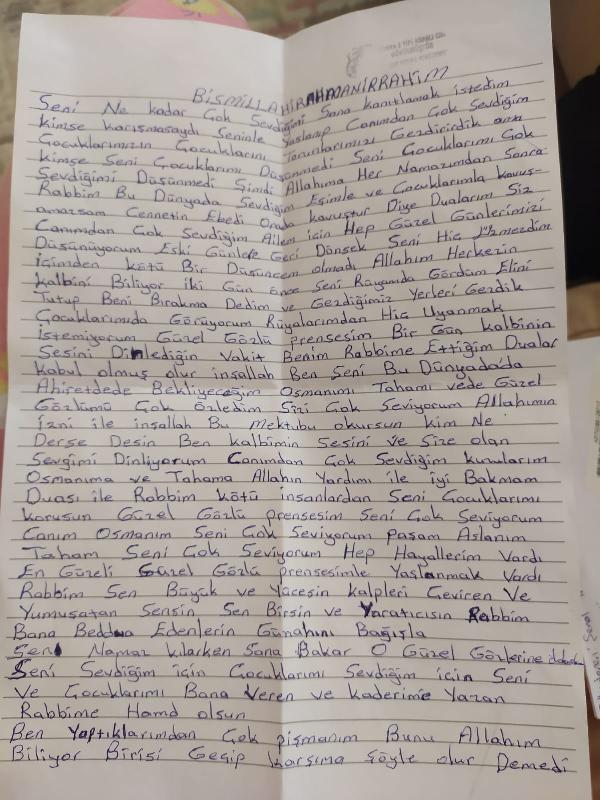 BİSMİLLAHİRAHMANİRRAHİM
Seni Ne kadar Çok Sevdiğimi Sana kanıtlamak istedim
kimse karışmasaydı Seninle Yaslanıp Canımdan Çok Sevdiğim
Çocuklarımızın Çocuklarını Torunlarımızı Gezdirirdik ama
kimse Seni Çocuklarımı Düşünmedi Seni Çocuklarımı Çok
Sevdiğimi Düşünmedi Şimdi Allahıma Her Namazımdan Sonra
Rabbim Bu Dünyada Sevdiğim Eşimle ve Çocuklarımla kavuş-
amazsam Cennetin Ebedi Orada kavuştur Diye Dualarım Siz
Canımdan Çok Sevdiğim Ailem için Hep Güzel Günlerimizi
Düşünüyorum Eski Günlere Geri Dönsek Seni Hiç
içimden kötü Bir Düşüncem olmadı Allahım Herkezin
kalbini Biliyor İki Gün önce Seni Rüyamda Gördüm Elini
Tutup Beni Bırakma Dedim ve Gezdiğimiz Yerleri Gezdik
Çocuklarımıda Görüyorum Rüyalarımdan Hiç Uyanmak
istemiyorum Güzel Gözlü prensesim Bir Gün kalbinin
Sesini Dinlediğin Vakit Benim Rabbime Ettiğim Dualar
kabul olmuş olur inşallah Ben Seni Bu Dünyada'da
Ahiretdede Bekliyeceğim Osmanımı Tahamı vede Güzel
Gözlümü Çok özledim Sizi Çok Seviyorum Allahımın
izni ile inşallah Bu mektubu okursun kim Ne
Derse Desin Ben kalbimin Sesini ve Size olan
Sevgimi Dinliyorum Canımdan Çok Sevdiğim kuzularım
Osmanıma ve Tahama Allahın Yardımı ile iyi Bakmam
Duası ile Rabbim kötü insanlardan Seni Çocuklarımı
korusun Güzel Gözlü prensesim Seni Çok Seviyorum
Canım Osmanım Seni Çok Seviyorum paşam Aslanım
Taham Seni Çok Seviyorum Hep Hayallerim Vardı
En Güzeli Güzel Gözlü prensesimle Yaslanmak Vardı
Rabbim Sen Büyük ve Yücesin kalpleri Çeviren Ve
Yumuşatan Sensin Sen Birsin ve Yaratıcısın Rabbim
Bana Beddua Edenlerin Günahını Bağışla
Seni Namaz kılarken Sana Bakar O Güzel Gözlerine
Seni Sevdiğim için Çocuklarımı Sevdiğim için Seni
Ve Çocuklarımı Bana Veren ve kaderime Yazan
Rabbime Hamd olsun
Ben Yaptıklarımdan Çok pişmanım Bunu Allahım
Biliyor Birisi Geçip karşıma şöyle olur Demedi